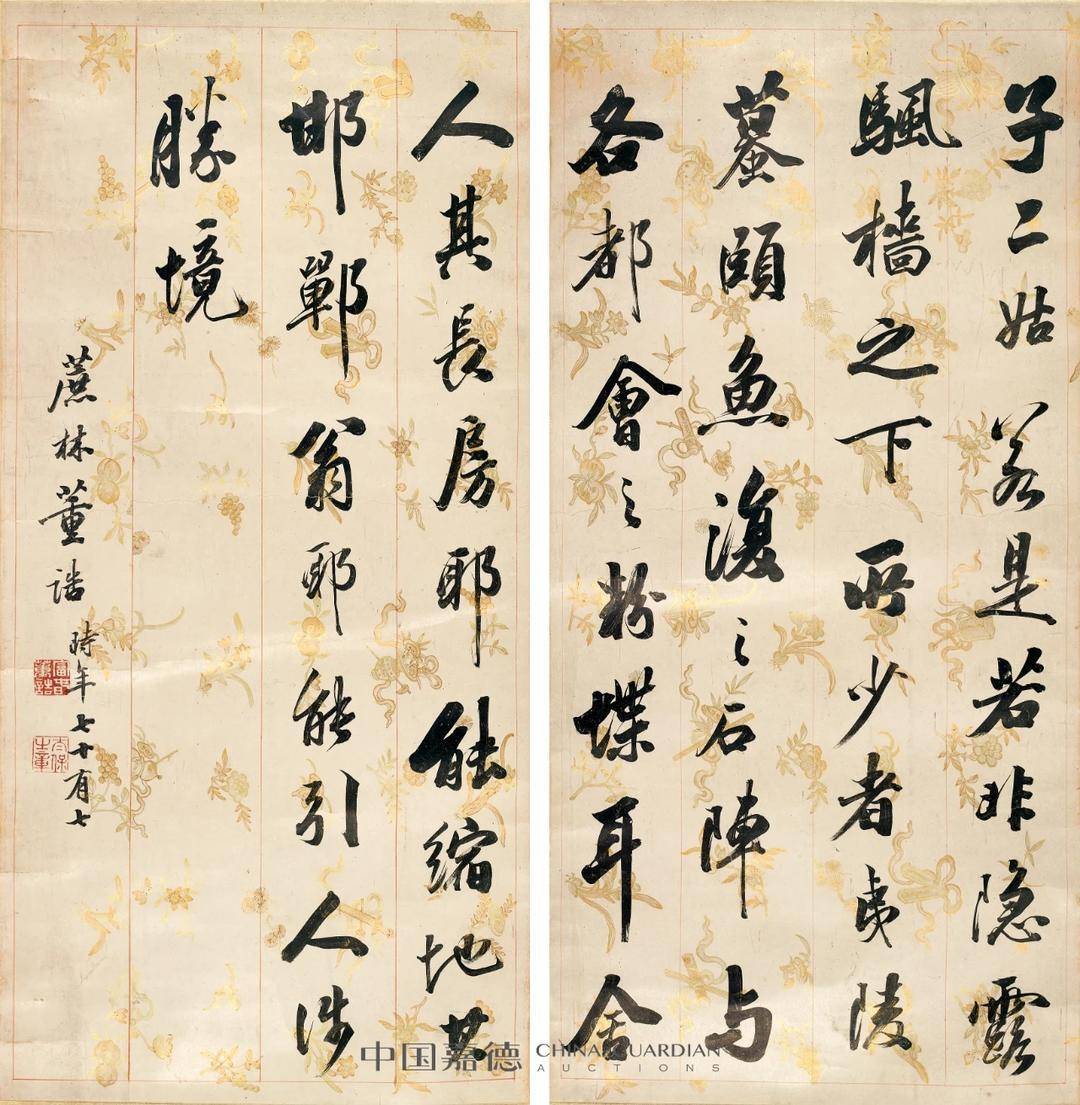 子二姑若是若非隐露
颿檣之下所少者夷陵
蟇頤魚澓之石陣与
各都會之粉堞耳舍
人其長房耶能縮地其
邯鄲翁耶能引人涉
勝境
蔗林董誥時年七十有七
富春董誥
太保之章
中国嘉德 CHINA GUARDIAN
AUCTIONS